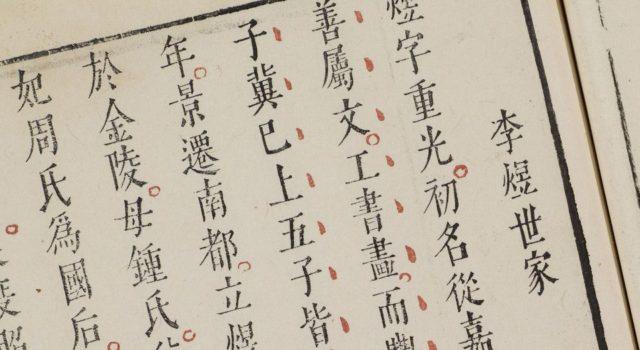 李煜世家
煜字重光。初名從嘉
善屬文。工書畫。而豐
子冀已上五子皆
年。景遷南都。立煜
於金陵。母鍾氏。
妃周氏爲國后